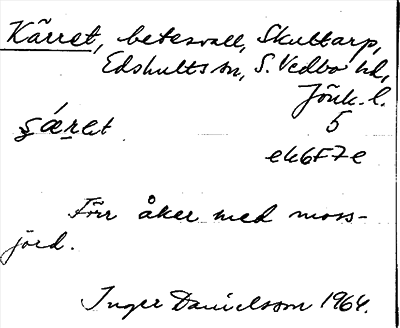 Kärret, betesvall, Skuttarp,
Edshults sn, S. Vedbo hd,
Jönk. l.
5
ek6f7e
Förr åker med moss-
jord.
Inger Danielsson 1964.